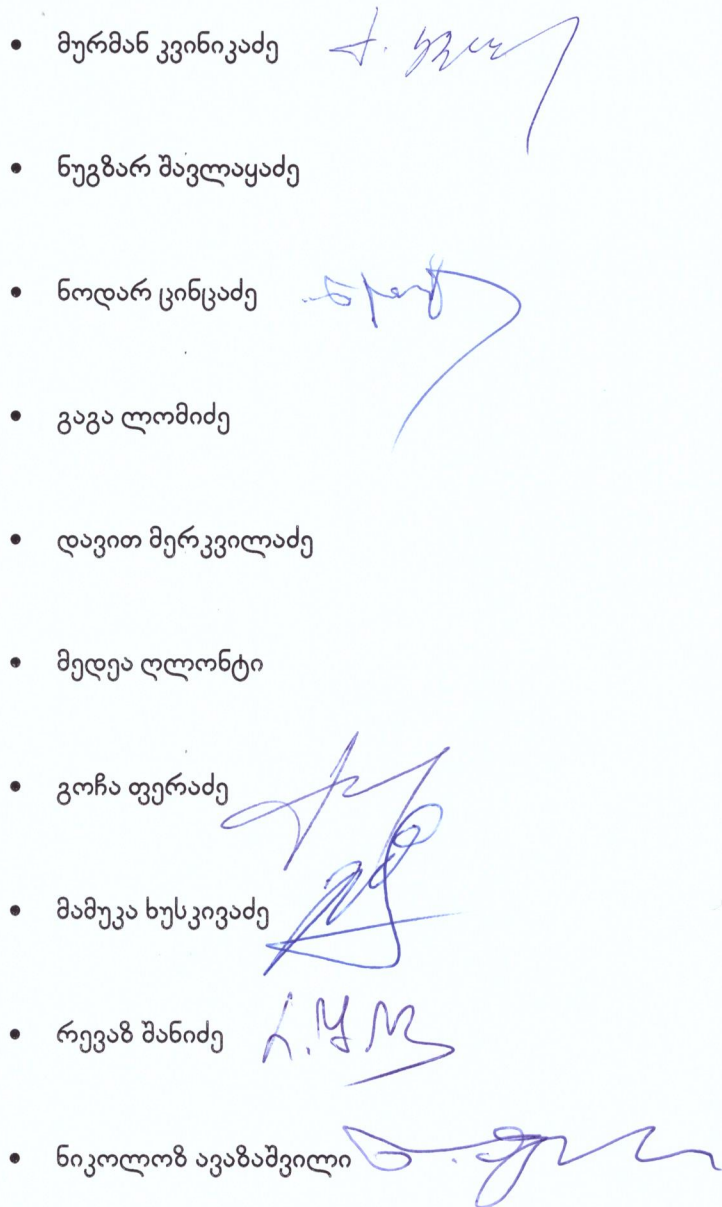 • მურმან კვინიკაძე
• ნუგზარ შავლაყაძე
• ნოდარ ცინცაძე
• გაგა ლომიძე
• დავით მერკვილაძე
• მედეა ღლონტი
• გოჩა ფერაძე
• მამუკა ხუსკივაძე
• რევაზ შანიძე
• ნიკოლოზ ავაზაშვილი